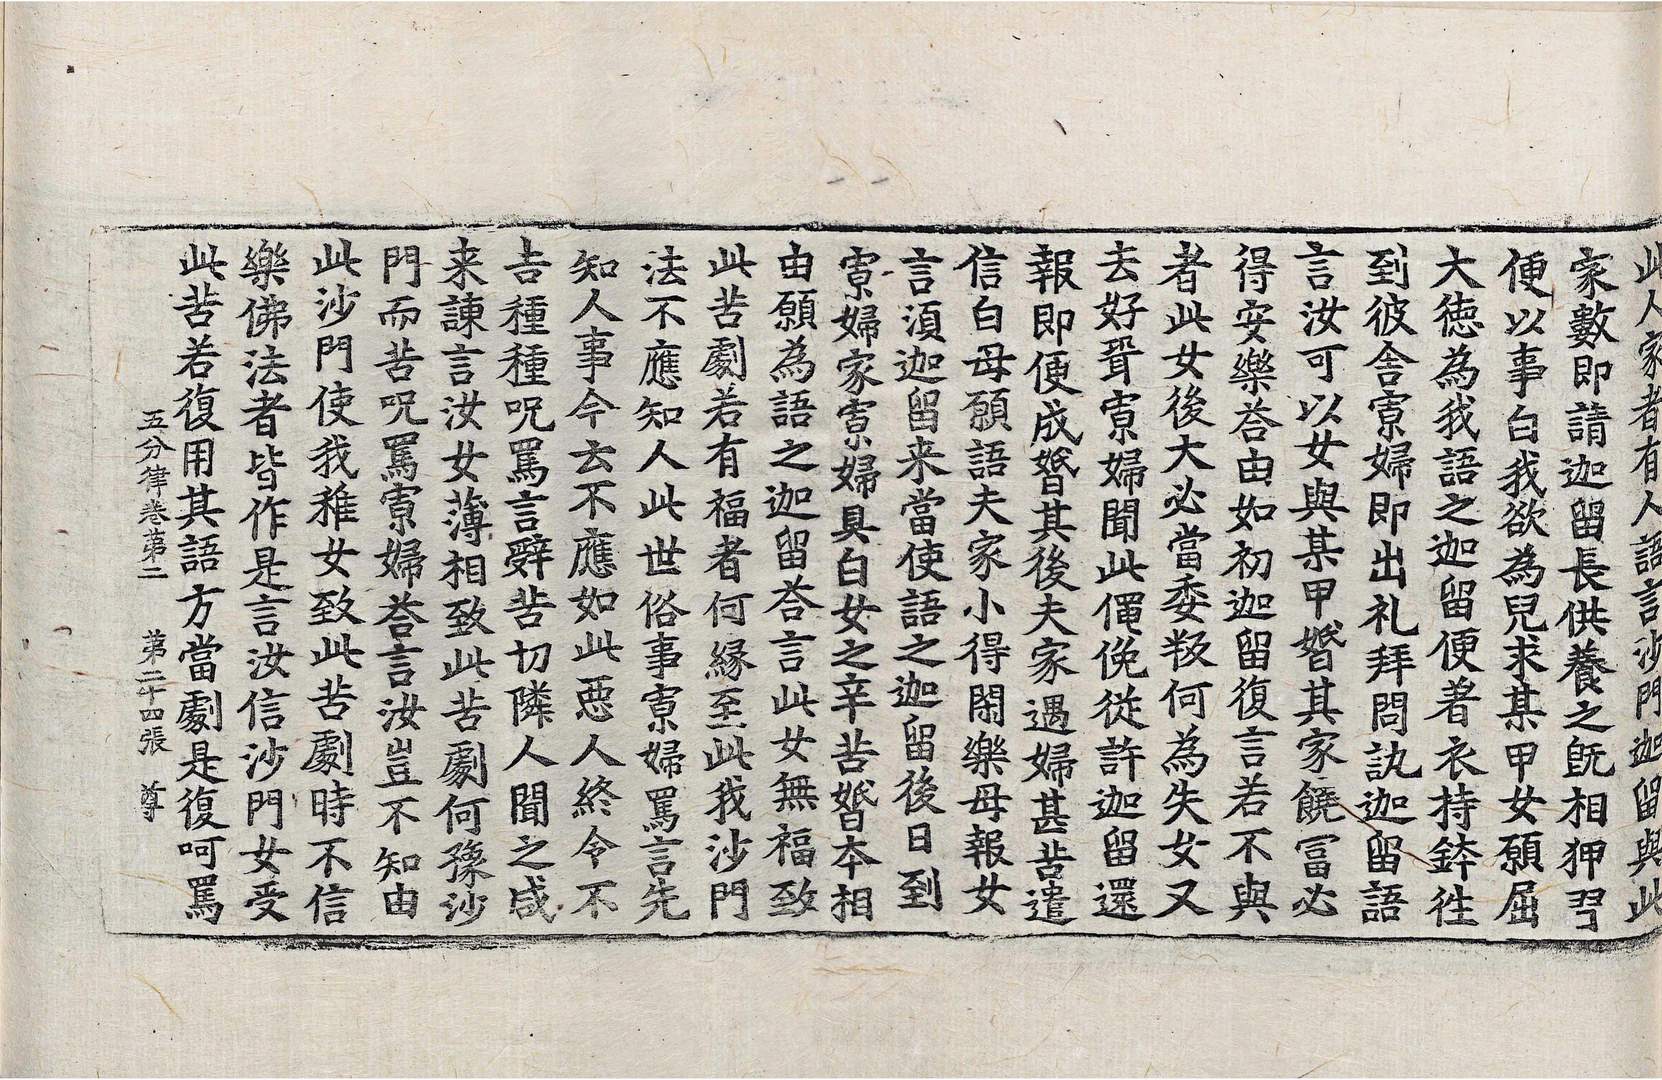 此人家者有人語言沙門迦留與此
家數即請迦留長供養之旣相狎習
便以事白我欲為兒求某甲女願屈
大德為我語之迦留便著衣持鉢往
到彼舍寡婦即出礼拜問訊迦留語
言汝可以女與某甲婚其家饒冨必
得安樂荅由如初迦留復言若不與
者此女後大必當委叛何為失女又
去好聟寡婦聞此僶俛從許迦留還
報即便成婚其後夫家遇婦甚苦遣
信白母願語夫家小得閑樂母報女
言湏迦留来當使語之迦留後日到
寡婦家寡婦具白女之辛苦婚本相
由願為語之迦留荅言此女無福致
此苦劇若有福者何緣至此我沙門
法不應知人此世俗事寡婦罵言先
知人事今云不應如此惡人終令不
吉種種呪罵言辭苦切隣人聞之咸
来諌言汝女薄相致此苦劇何豫沙
門而苦呪罵寡婦荅言汝豈不知由
此沙門使我稚女致此苦劇時不信
樂佛法者皆作是言汝信沙門女受
此苦若復用其語方當劇是復呵罵
五分律卷第二 第二十四張 尊